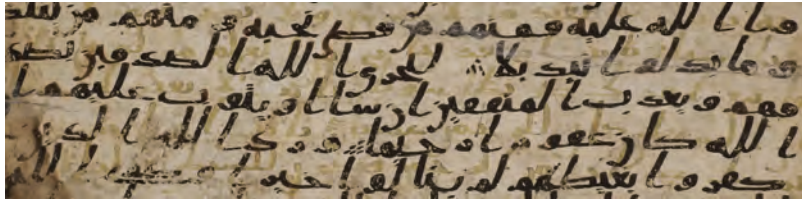 وا الله عليه فمنهم من قضى نحبه و منهم من ينتظ
ر و ما بدلوا تبديلا ليجزي الله الصدقين بصد
قهم و يعذب المنفقين ان شا او يتوب عليهم ان
الله كان غفورا رحيما و رد الله الذين
كفروا بغيظهم لم ينالوا خيرا و كفى الله